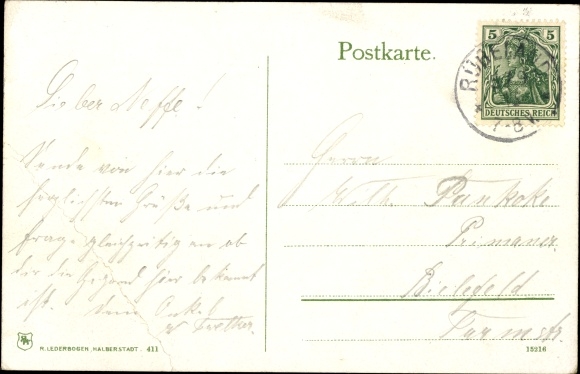 Postkarte.
5 5
DEUTSCHES REICH
RÜBELAND
7-8 V.
Lieber Neffe!
Sende von hier die
herzlichsten Grüße und
frage gleichzeitig an ob
dir die Gegend hier bekannt
ist. Dein Onkel
Herrn
Wilh. Pankoke
Primaner.
Bielefeld
Turmstr.
R. LEDERBOGEN, HALBERSTADT. 411
15216